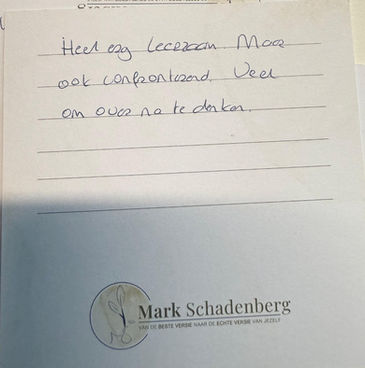 Heel erg leerzaam. Maar
ook confronterend. Veel
om over na te denken.
Mark Schadenberg
VAN DE BESTE VERSIE NAAR DE ECHTE VERSIE VAN JEZELF